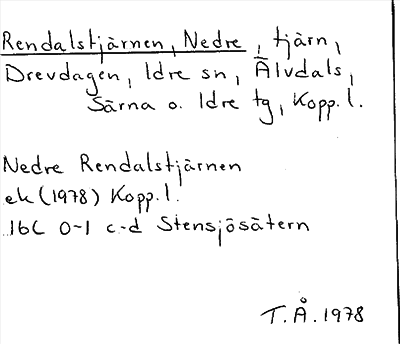 Rendalstjärnen, Nedre, tjärn,
Drevdagen, Idre sn, Älvdals,
Särna o. Idre tg, Kopp. l.
Nedre Rendalstjärnen
ek (1978) Kopp. l.
16C 0-1 c-d Stensjösätern
T.Å. 1978